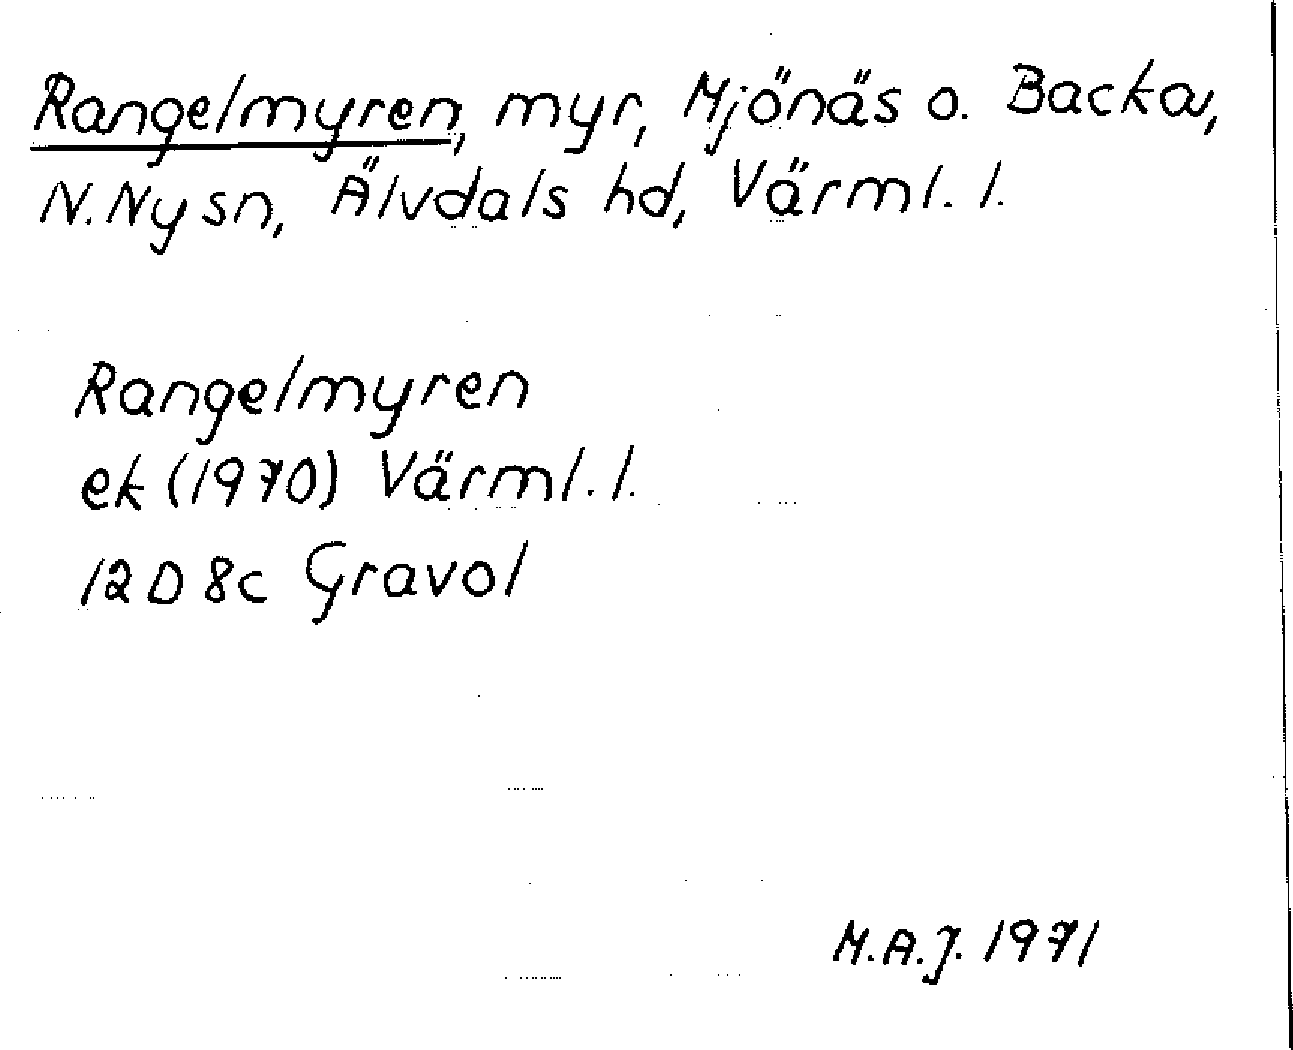 Rangelmyren, myr, Mjönäs o. Backa,
N. Ny sn, Älvdals hd, Värml. l.
Rangelmyren
ek (1970) Värml. l.
12D 8c Gravol
M.A.J. 1971